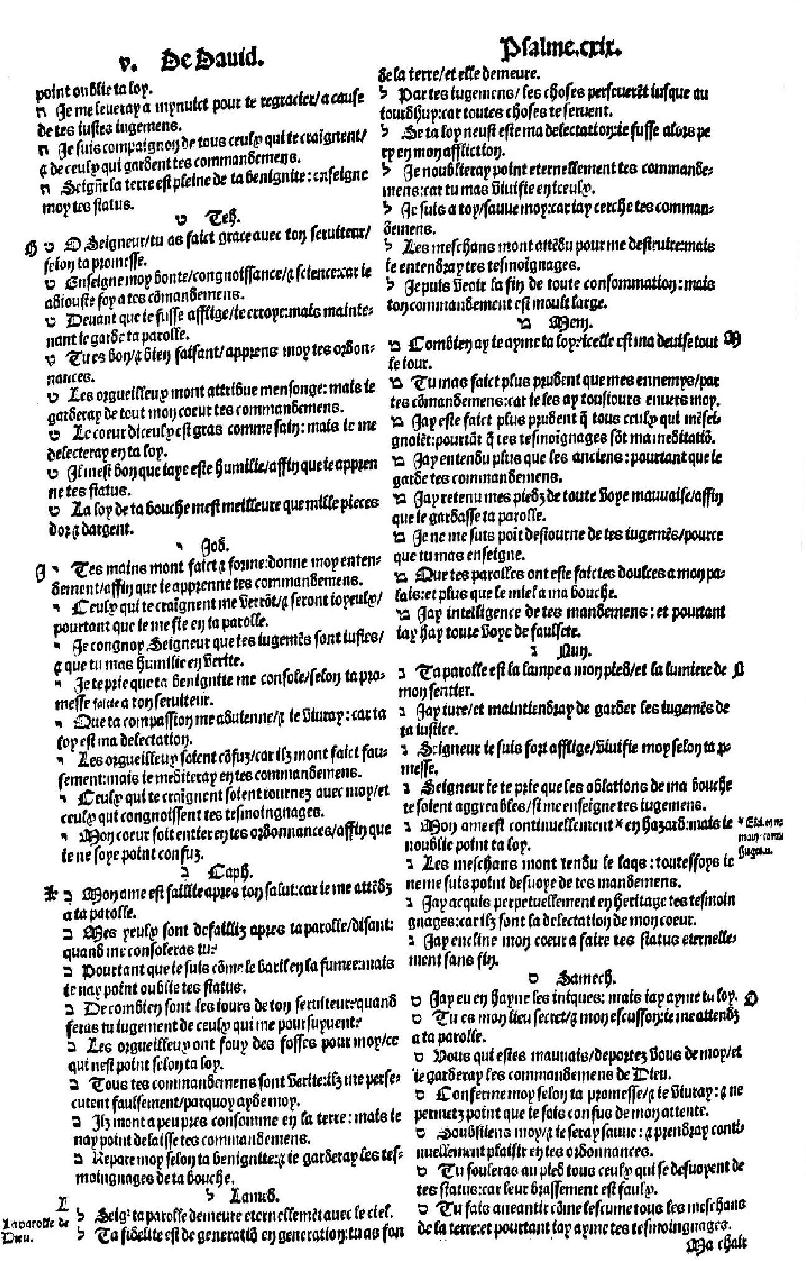 v. De Dauid.
point oublie ta loy.
ח Je me leueray a mynuict pour te regracier/a cause
de tes iustes iugemens.
ח Je suis compaignon de tous ceulx qui te craignent/
& de ceulx qui gardent tes commandemens.
ח Seignr̃ la terre est pleine de ta benignite: enseigne
moy tes status.
ט Teth.
G ט O Seigneur/tu as faict grace auec ton seruiteur/
selon ta promesse.
ט Enseigne moy bonte/congnoissance/& science: car ie
adiouste foy a tes cõmandemens.
ט Deuant que ie fusse afflige/ie erroye: mais mainte-
nant ie garde ta parolle.
ט Tu es bon/& bien faisant/apprens moy tes ordon-
nances.
ט Les orgueilleux mont attribue mensonge: mais ie
garderay de tout mon coeur tes commandemens.
ט Le coeur diceulx est gras comme sain: mais ie me
delecteray en ta loy.
ט Il mest bon que iaye este humilie/affin que ie appren
ne tes status.
ט La loy de ta bouche mest meilleure que mille pieces
dor & dargent.
י Jod.
J י Tes mains mont faict & forme: donne moy enten-
dement/affin que ie apprenne tes commandemens.
י Ceulx qui te craignent me verrõt/& seront ioyeulx/
pourtant que ie me fie en ta parolle.
י Je congnoy Seigneur que tes iugemẽs sont iustes/
& que tu mas humilie en verite.
י Je te prie que ta benignite me console/selon ta pro-
messe faicte a ton seruiteur.
י Que ta compassion me aduienne/& ie viuray: car ta
loy est ma delectation.
י Les orgueilleux soient cõfuz/car ilz mont faict fau-
sement: mais ie mediteray en tes commandemens.
י Ceulx qui te craignent soient tournez auec moy/et
ceulx qui congnoissent tes tesmoingnages.
י Mon coeur soit entier en tes ordonnances/affin que
ie ne soye point confuz.
כ Caph.
כ Mon ame est faillie apres ton salut: car ie me attẽdz
a ta parolle.
כ Mes yeulx sont defailliz apres ta parolle/disant:
quand me consoleras tu?
כ Pourtant que ie suis cõme le baril en la fumee: mais
ie nay point oublie tes status.
כ De combien sont les iours de ton seruiteur: quand
feras tu iugement de ceulx qui me poursuyuent?
כ Les orgueilleux ont fouy des fosses pour moy/ce
qui nest point selon ta loy.
כ Tous tes commandemens sont verite: ilz me perse-
cutent faulsement/parquoy ayde moy.
כ Ilz mont a peu pres consomme en la terre: mais ie
nay point delaisse tes commandemens.
כ Repare moy selon ta benignite: & ie garderay les tes-
moingnages de ta bouche.
ל Lamed.
L
La parolle de
Dieu.
ל Seigr̃ ta parolle demeure eternellemẽt auec le ciel.
ל Ta fidelite est de generatiõ en generation: tu as fon
Psalme. cxix.
de la terre/et elle demeure.
ל Par tes iugemens/les choses perseuerẽt iusque au
iourdhuy: car toutes choses te seruent.
ל Se ta loy neust este ma delectation: ie fusse alors pe
ry en mon affliction.
ל Je noublieray point eternellement tes commande-
mens: car tu mas viuifie en iceulx.
ל Je suis a toy/sauue moy: car iay cerche tes comman-
demens.
ל Les meschans mont attẽdu pour me destruire: mais
ie entendray tes tesmoignages.
ל Je puis veoir la fin de toute consommation: mais
ton commandement est moult large.
מ Mem.
מ Combien ay ie ayme ta loy: icelle est ma deuise tout M
le iour.
מ Tu mas faict plus prudent que mes ennemys/par
tes cõmandemens: car ie les ay tousiours enuers moy.
מ Jay este faict plus prudent q̃ tous ceulx qui mẽsei-
gnoiẽt: pourtãt q̃ tes tesmoignages sõt ma meditatiõ.
מ Jay entendu plus que les anciens: pourtant que ie
garde tes commandemens.
מ Jay retenu mes piedz de toute voye mauuaise/affin
que ie gardasse ta parolle.
מ Je ne me suis poĩt destourne de tes iugemẽs/pource
que tu mas enseigne.
מ Que tes parolles ont este faictes doulces a mon pa-
lais: et plus que le miel a ma bouche.
מ Jay intelligence de tes mandemens: et pourtant
iay hay toute voye de faulsete.
נ Nun.
נ Ta parolle est la lampe a mon pied/et la lumiere de N
mon sentier.
נ Jay iure/et maintiendray de garder les iugemẽs de
ta iustice.
נ Seigneur ie suis fort afflige/viuifie moy selon ta pro-
messe.
נ Seigneur ie te prie que les oblations de ma bouche
te soient aggreables/& me enseigne tes iugemens.
נ Mon ame est continuellement * en hazard: mais ie
noublie point ta loy.
נ Les meschans mont tendu le laqs: toutesfoys ie
ne me suis point desuoye de tes mandemens.
נ Jay acquis perpetuellement en heritage tes tesmoin
gnages: car ilz sont la delectation de mon coeur.
נ Jay encline mon coeur a faire tes status eternelle-
ment sans fin.
ס Samech.
ס Jay eu en hayne les iniques: mais iay ayme ta loy. O
ס Tu es mon lieu secret/& mon escusson: ie me attendz
a ta parolle.
ס Vous qui estes mauuais/deportez vous de moy/et
ie garderay les commandemens de Dieu.
ס Conferme moy selon ta promesse/& ie viuray: & ne
permetz point que ie sois confus de mon attente.
ס Soubstiens moy/& ie seray sauue: & prendray conti-
nuellement plaisir en tes ordonnances.
ס Tu fouleras au pied tous ceulx qui se desuoyent de
tes status: car leur brassement est faulx.
ס Tu fais aneantir cõme lescume tous les meschans
de la terre: et pourtant iay ayme tes tesmoingnages.
Ma chair